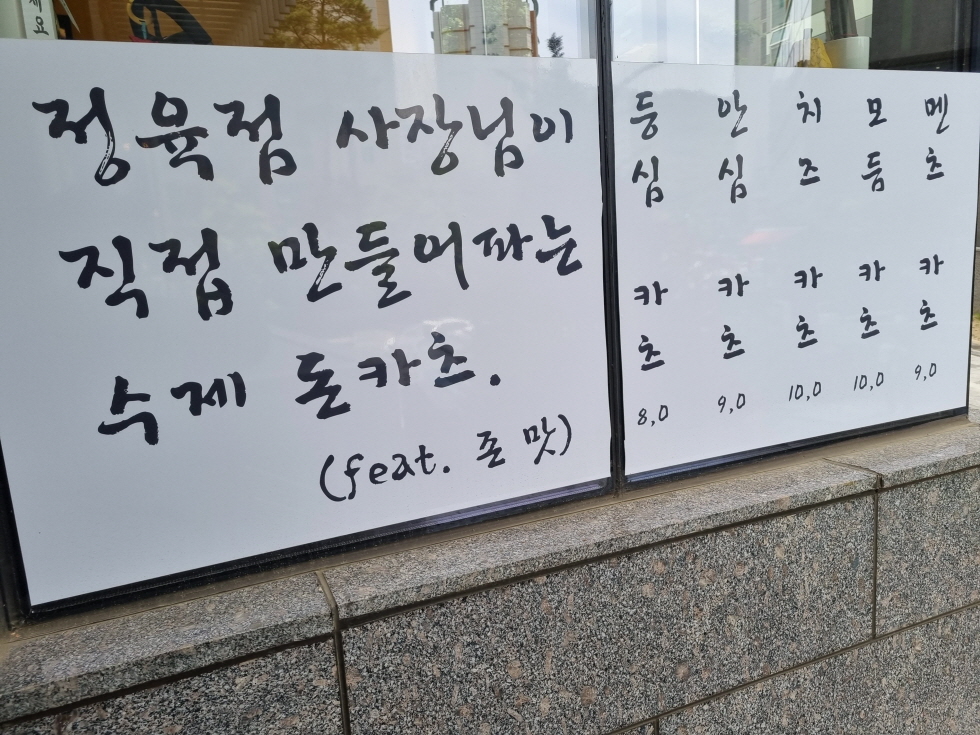 제요
정육점 사장님이
직접 만들어파는
수제 돈카츠.
(feat. 존 맛)
등심 카츠 8,0
안심 카츠 9,0
치즈 카츠 10,0
모듬 카츠 10,0
멘츠 카츠 9,0